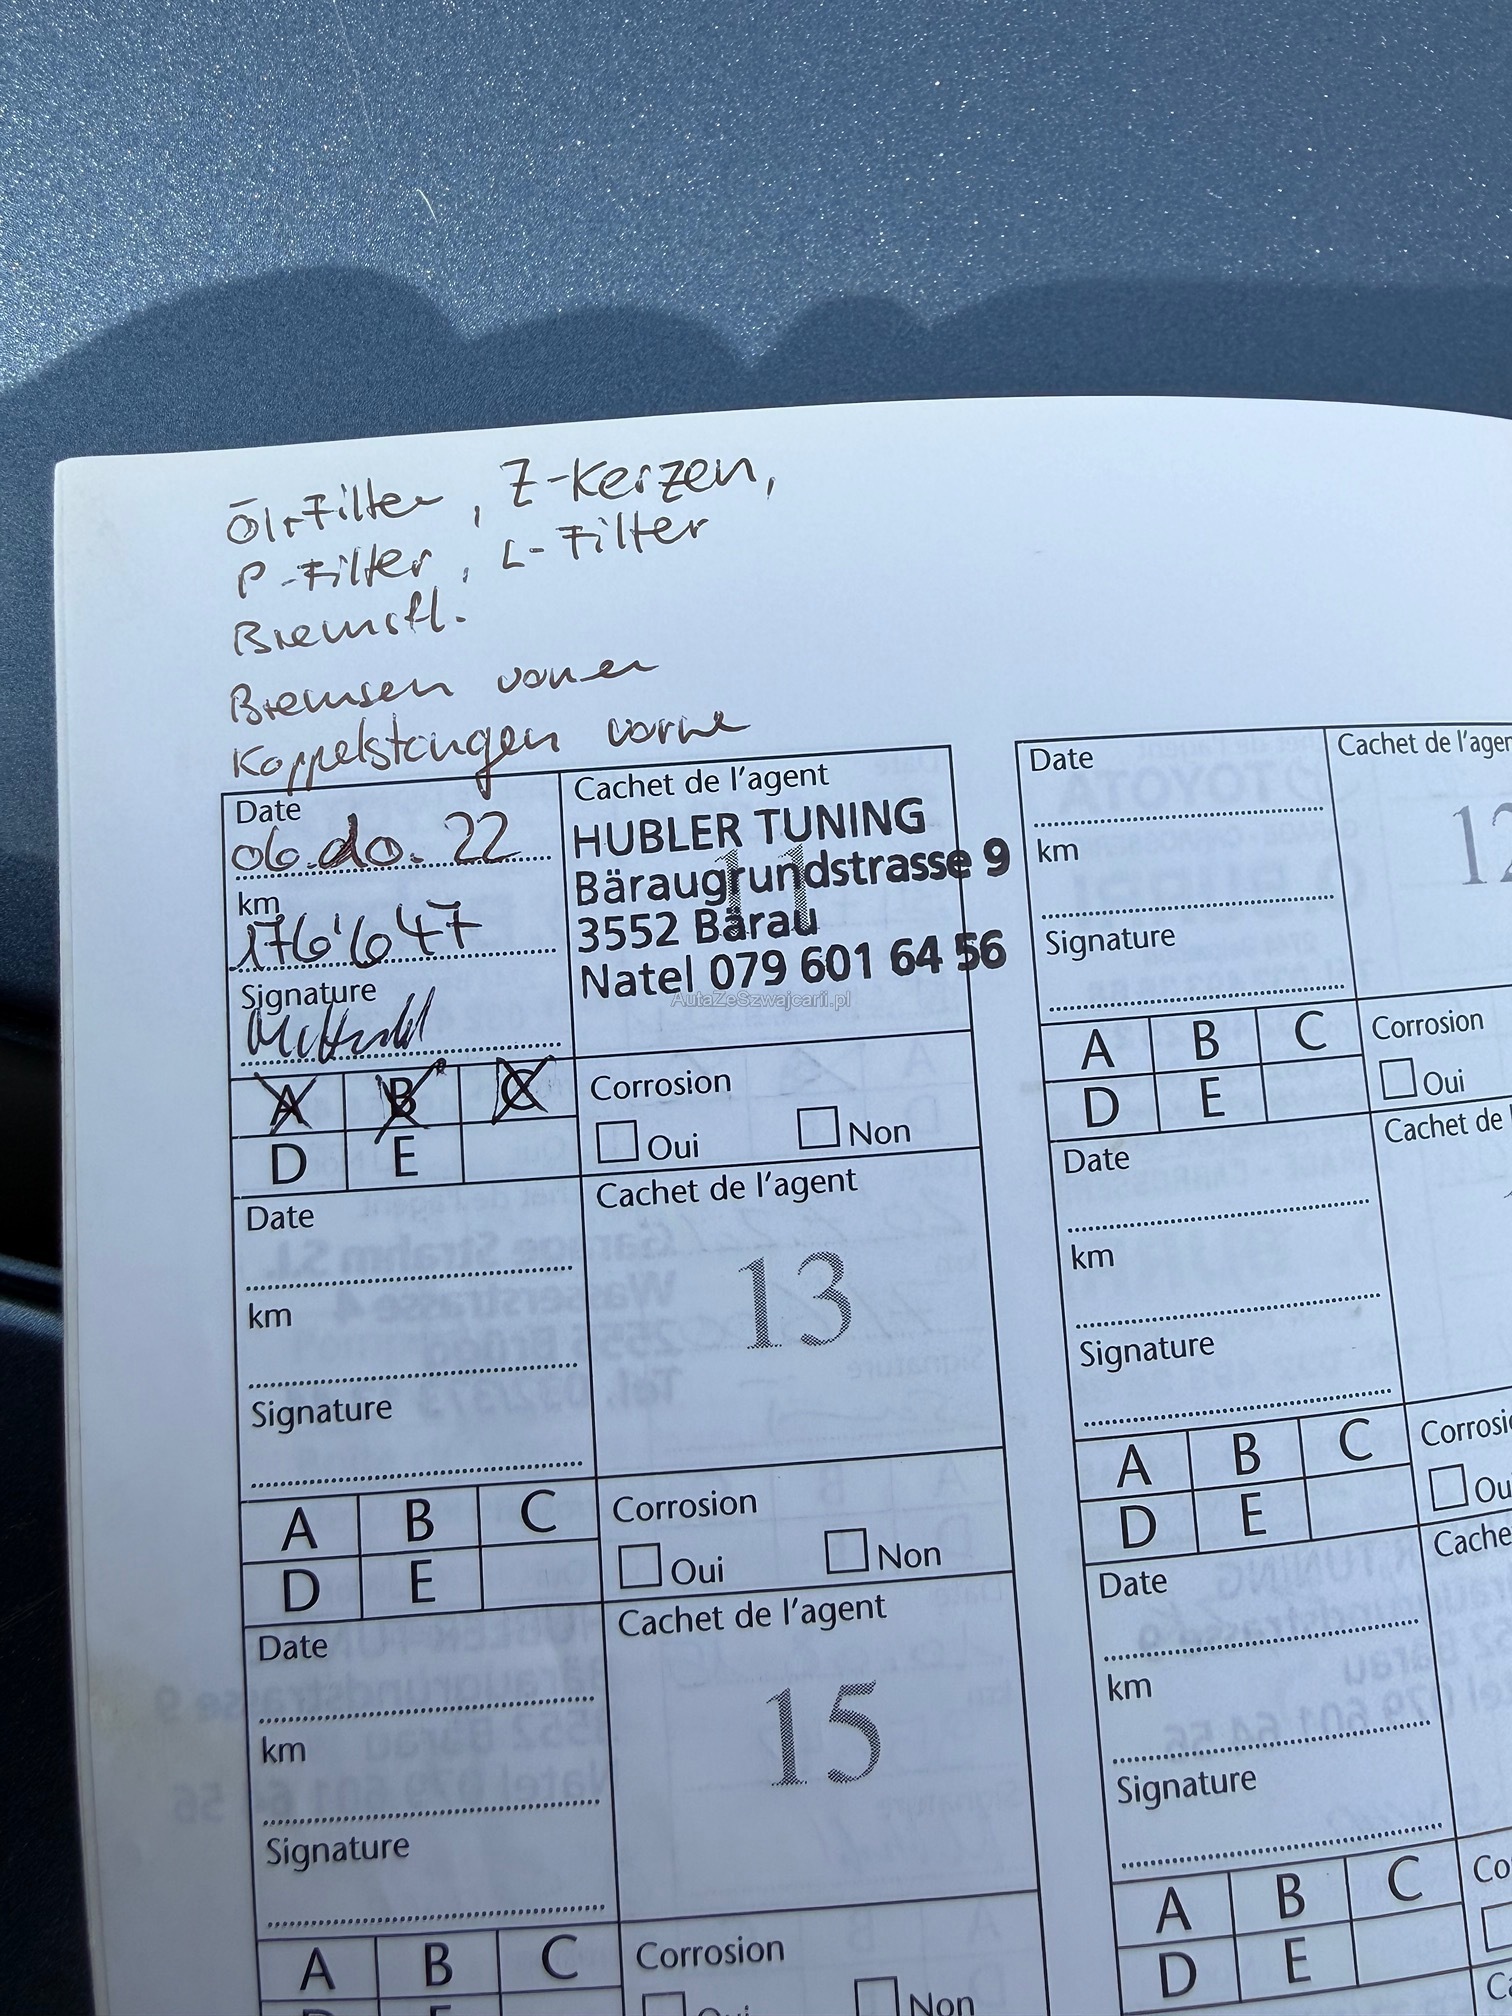 Öl+Filter, Z-Kerzen,
P-Filter, L-Filter
Bremsfl.
Bremsen vornen
Koppelstangen vorne
Date
06. 22
km
176'647
Signature
Cachet de l'agent
11
HUBLER TUNING
Bäraugrundstrasse 9
3552 Bärau
Natel 079 601 64 56
AutaZeSzwajcarii.pl
A B C
D E
Corrosion
Oui Non
Date
km
Signature
Cachet de l'agent
13
A B C
D E
Corrosion
Oui Non
Date
km
Signature
Cachet de l'agent
15
A B C
D E
Corrosion
Oui Non
Date
km
Signature
Cachet de l'agen
12
A B C
D E
Corrosion
Oui
Date
km
Signature
Cachet de
A B C
D E
Corrosi
Ou
Date
km
Signature
Cache
A B C
D E
Co
Ca